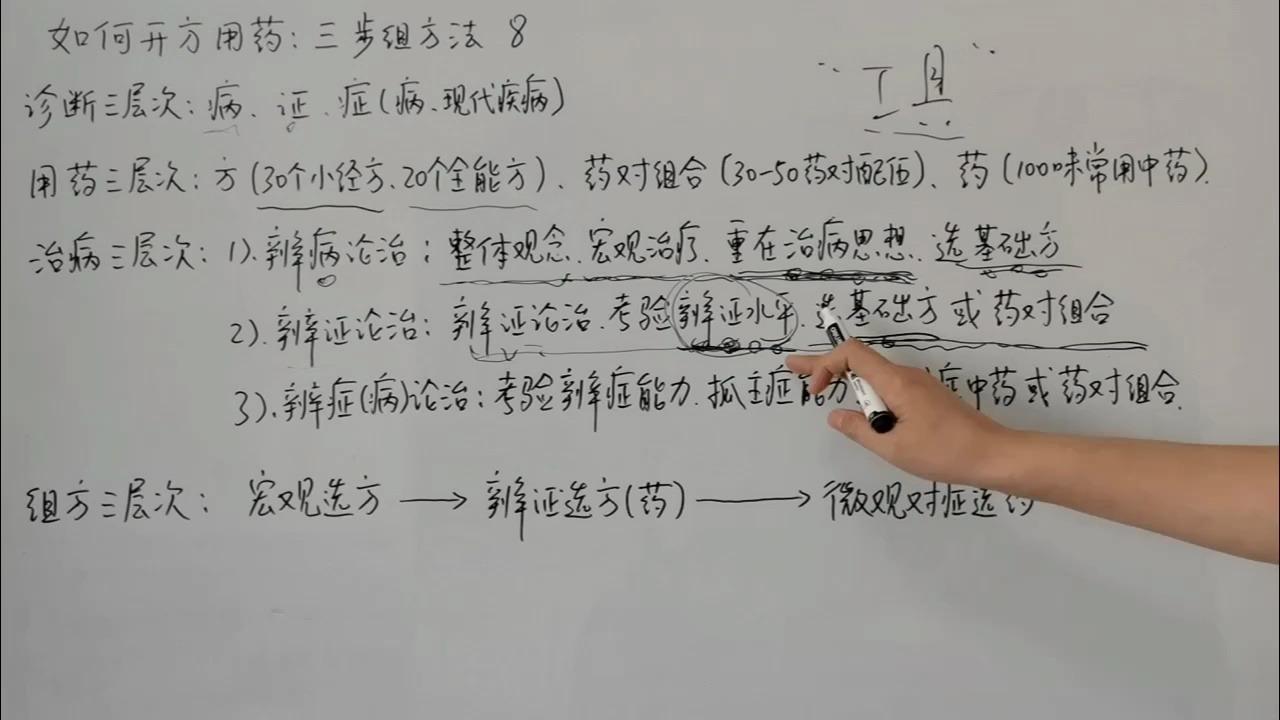 如何开方用药:三步组方法 8
工具
诊断三层次:病、证、症(病、现代疾病)
用药三层次:方(30个小经方、20个全能方)、药对组合(30-50药对配伍)、药(100味常用中药).
治病三层次:1).辨病论治:整体观念.宏观治疗.重在治病思想.选基础方
2).辨证论治:辨证论治.考验辨证水平.选基础方或药对组合
3).辨症(病)论治:考验辨症能力.抓主症能力 症中药或药对组合.
组方三层次: 宏观选方 → 辨证选方(药) → 微观对症选药